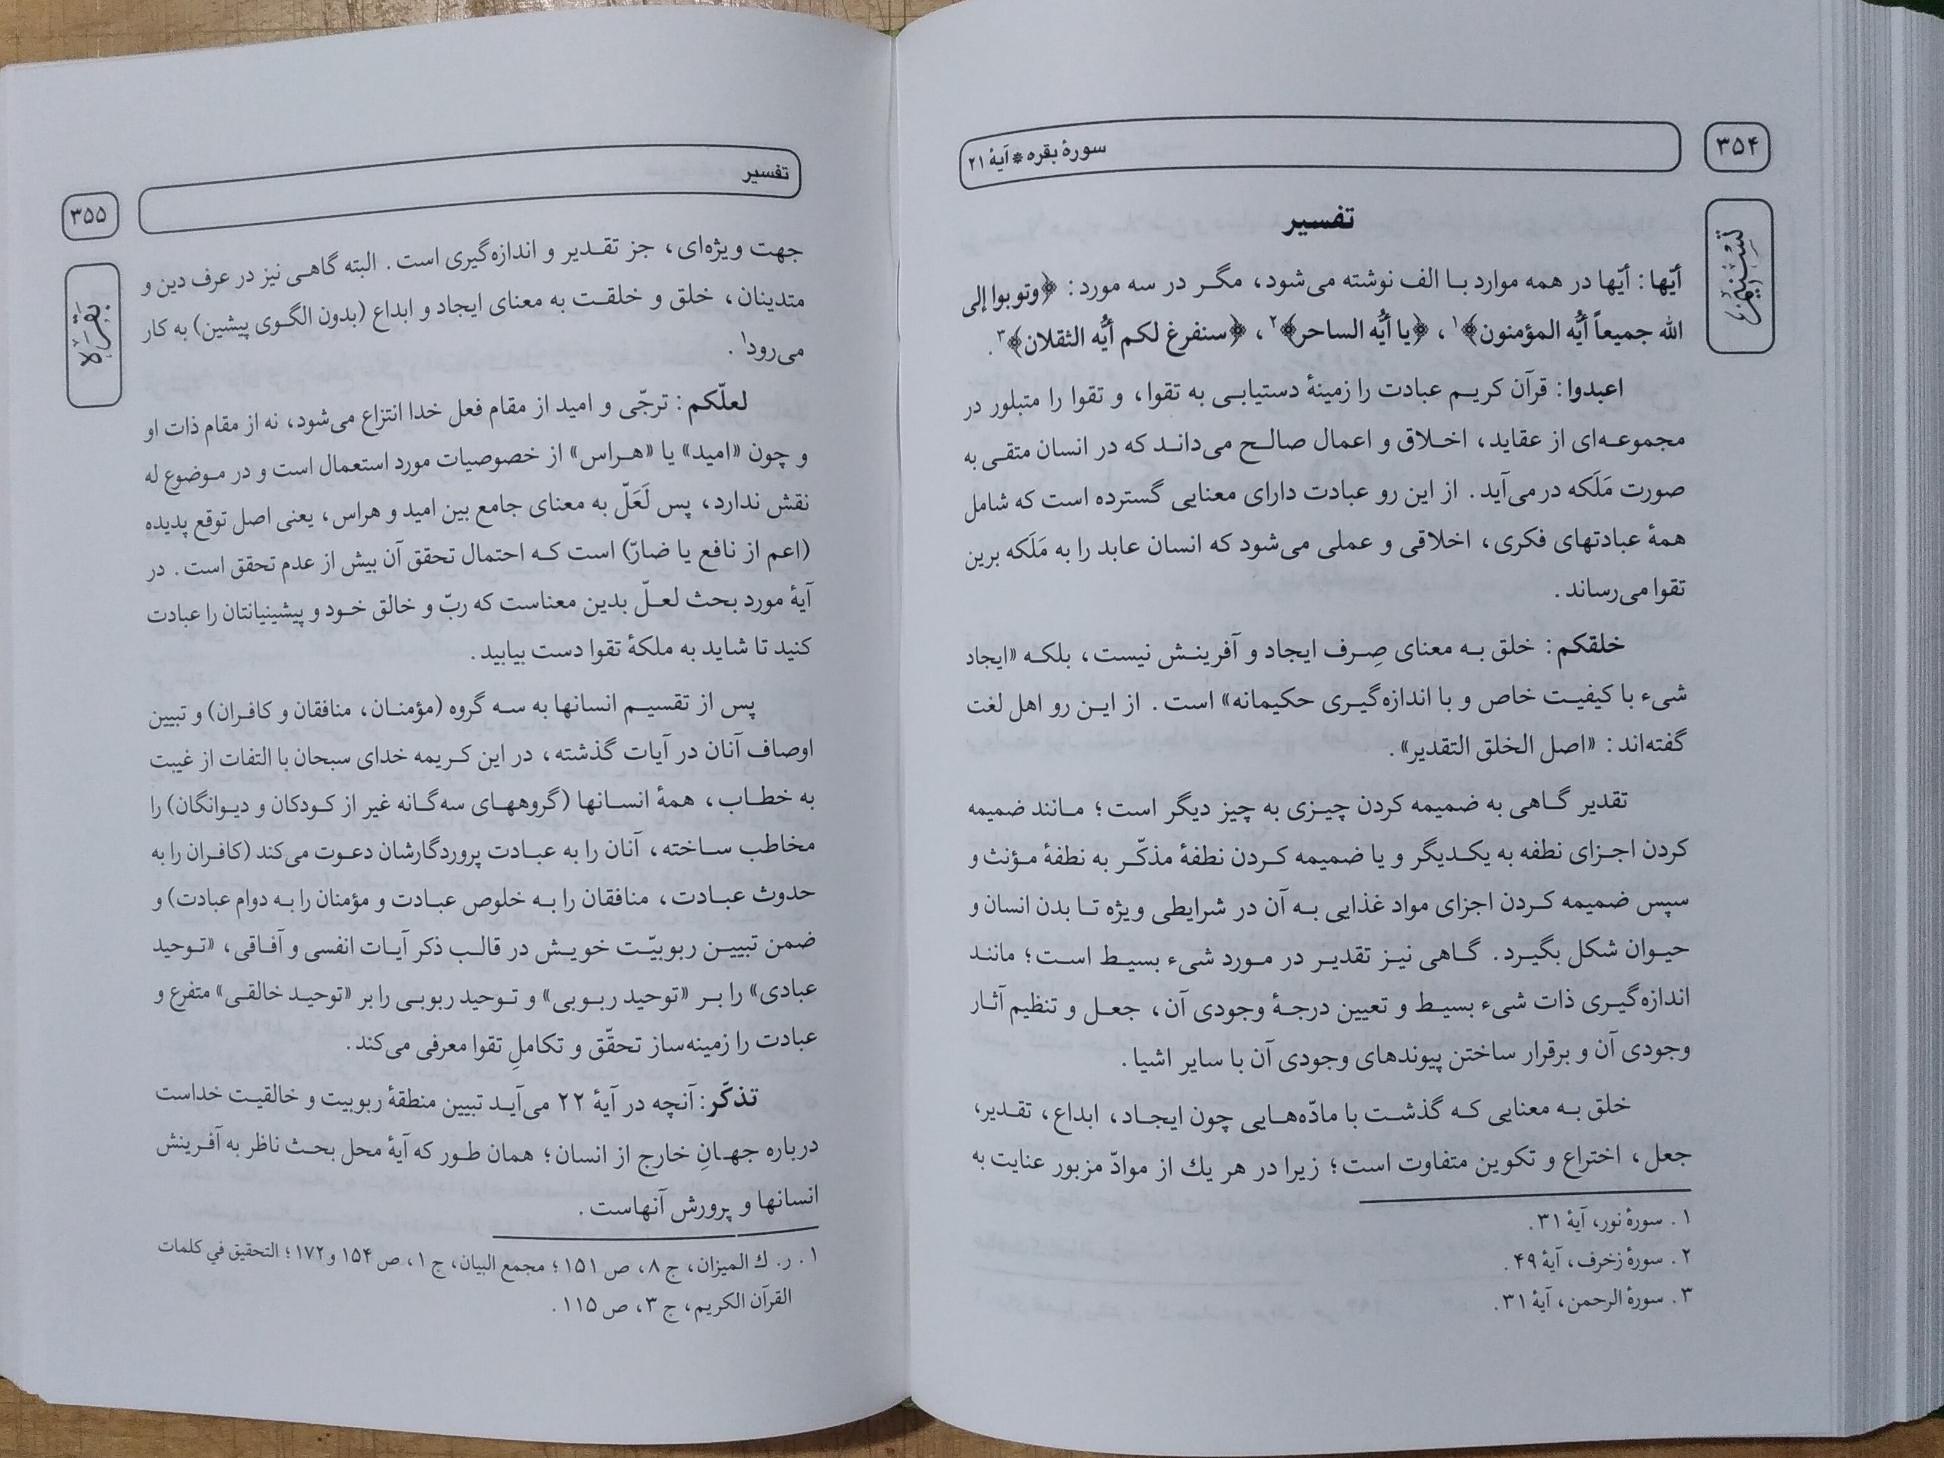 ۳۵۴
سورهٔ بقره * آیهٔ ۲۱
تسنیم
تفسیر
أیّها: أیّها در همه موارد بـا الف نوشته می‌شود، مگـر در سه مورد: ﴿وتوبوا إلی
الله جمیعاً أیُّه المؤمنون﴾۱، ﴿یا أیُّه الساحر﴾۲، ﴿سنفرغ لکم أیُّه الثقلان﴾۳.
اعبدوا: قرآن کریـم عبادت را زمینهٔ دستیابـی به تقوا، و تقوا را متبلور در
مجموعـه‌ای از عقاید، اخـلاق و اعمال صالـح می‌دانـد که در انسان متقـی به
صورت مَلَکه در می‌آید. از این رو عبادت دارای معنایی گسترده است که شامل
همهٔ عبادتهای فکری، اخلاقی و عملی می‌شود که انسان عابد را به مَلَکه برین
تقوا می‌رساند.
خلقکم: خلق بـه معنای صِـرف ایجاد و آفرینـش نیست، بلکـه «ایجاد
شیء با کیفیـت خاص و با اندازه‌گیـری حکیمانه» است. از ایـن رو اهل لغت
گفته‌اند: «اصل الخلق التقدیر».
تقدیر گـاهی به ضمیمه کردن چیـزی به چیز دیگر است؛ مـانند ضمیمه
کردن اجـزای نطفه به یکـدیگر و یا ضمیمه کـردن نطفهٔ مذکّـر به نطفهٔ مؤنث و
سپس ضمیمه کـردن اجزای مواد غذایی بـه آن در شرایطی ویژه تـا بدن انسان و
حیـوان شکل بگیـرد. گـاهی نیـز تقدیـر در مـورد شیء بسیـط اسـت؛ مانند
اندازه‌گیـری ذات شیء بسیـط و تعیین درجـهٔ وجودی آن، جعـل و تنظیم آثـار
وجودی آن و برقرار ساختن پیوندهای وجودی آن با سایر اشیا.
خلق بـه معنایی کـه گذشـت با مادّه‌هـایی چون ایجـاد، ابداع، تقـدیر،
جعل، اختراع و تکوین متفاوت است؛ زیرا در هر یك از موادّ مزبور عنایت به
۱. سورهٔ نور، آیهٔ ۳۱.
۲. سورهٔ زخرف، آیهٔ ۴۹.
۳. سورهٔ الرحمن، آیهٔ ۳۱.
تفسیر
۳۵۵
جهت ویژه‌ای، جز تقـدیر و اندازه‌گیری است. البته گاهـی نیز در عرف دین و
متدینان، خلق و خلقـت به معنای ایجاد و ابداع (بدون الگـوی پیشین) به کار
می‌رود۱.
لعلّکم: ترجّی و امید از مقام فعل خدا انتزاع می‌شود، نه از مقام ذات او
و چون «امید» یا «هـراس» از خصوصیات مورد استعمال است و در مـوضوع له
نقش ندارد، پس لَعَلّ به معنای جامع بین امید و هراس، یعنی اصل توقع پدیده
(اعم از نافع یا ضارّ) است کـه احتمال تحقق آن بیش از عدم تحقق است. در
آیهٔ مورد بحث لعـلّ بدین معناست که ربّ و خالق خـود و پیشینیانتان را عبادت
کنید تا شاید به ملکهٔ تقوا دست بیابید.
پس از تقسیـم انسانها به سـه گروه (مؤمنـان، منافقان و کافـران) و تبیین
اوصاف آنان در آیات گذشته، در این کـریمه خدای سبحان با التفات از غیبت
به خطـاب، همهٔ انسـانها (گروههـای سه‌گـانه غیر از کـودکان و دیـوانگان) را
مخاطب سـاخته، آنان را به عبـادت پروردگارشان دعـوت می‌کند (کافـران را به
حدوث عبـادت، منافقان را بـه خلوص عبـادت و مؤمنان را بـه دوام عبادت) و
ضمن تبییـن ربوبیّـت خویـش در قالـب ذکر آیـات انفسی و آفـاقی، «توحید
عبادی» را بـر «توحید ربـوبی» و تـوحید ربوبـی را بر «توحیـد خالقـی» متفرع و
عبادت را زمینه‌ساز تحقّق و تکاملِ تقوا معرفی می‌کند.
تذکّر: آنچه در آیهٔ ۲۲ می‌آیـد تبیین منطقهٔ ربوبیت و خالقیـت خداست
درباره جهـانِ خارج از انسان؛ همان طـور که آیهٔ محل بحـث ناظر به آفـرینش
انسانها و پرورش آنهاست.
۱. ر. ك المیزان، ج ۸، ص ۱۵۱؛ مجمع البیان، ج ۱، ص ۱۵۴ و ۱۷۲؛ التحقیق في کلمات
القرآن الکریم، ج ۳، ص ۱۱۵.